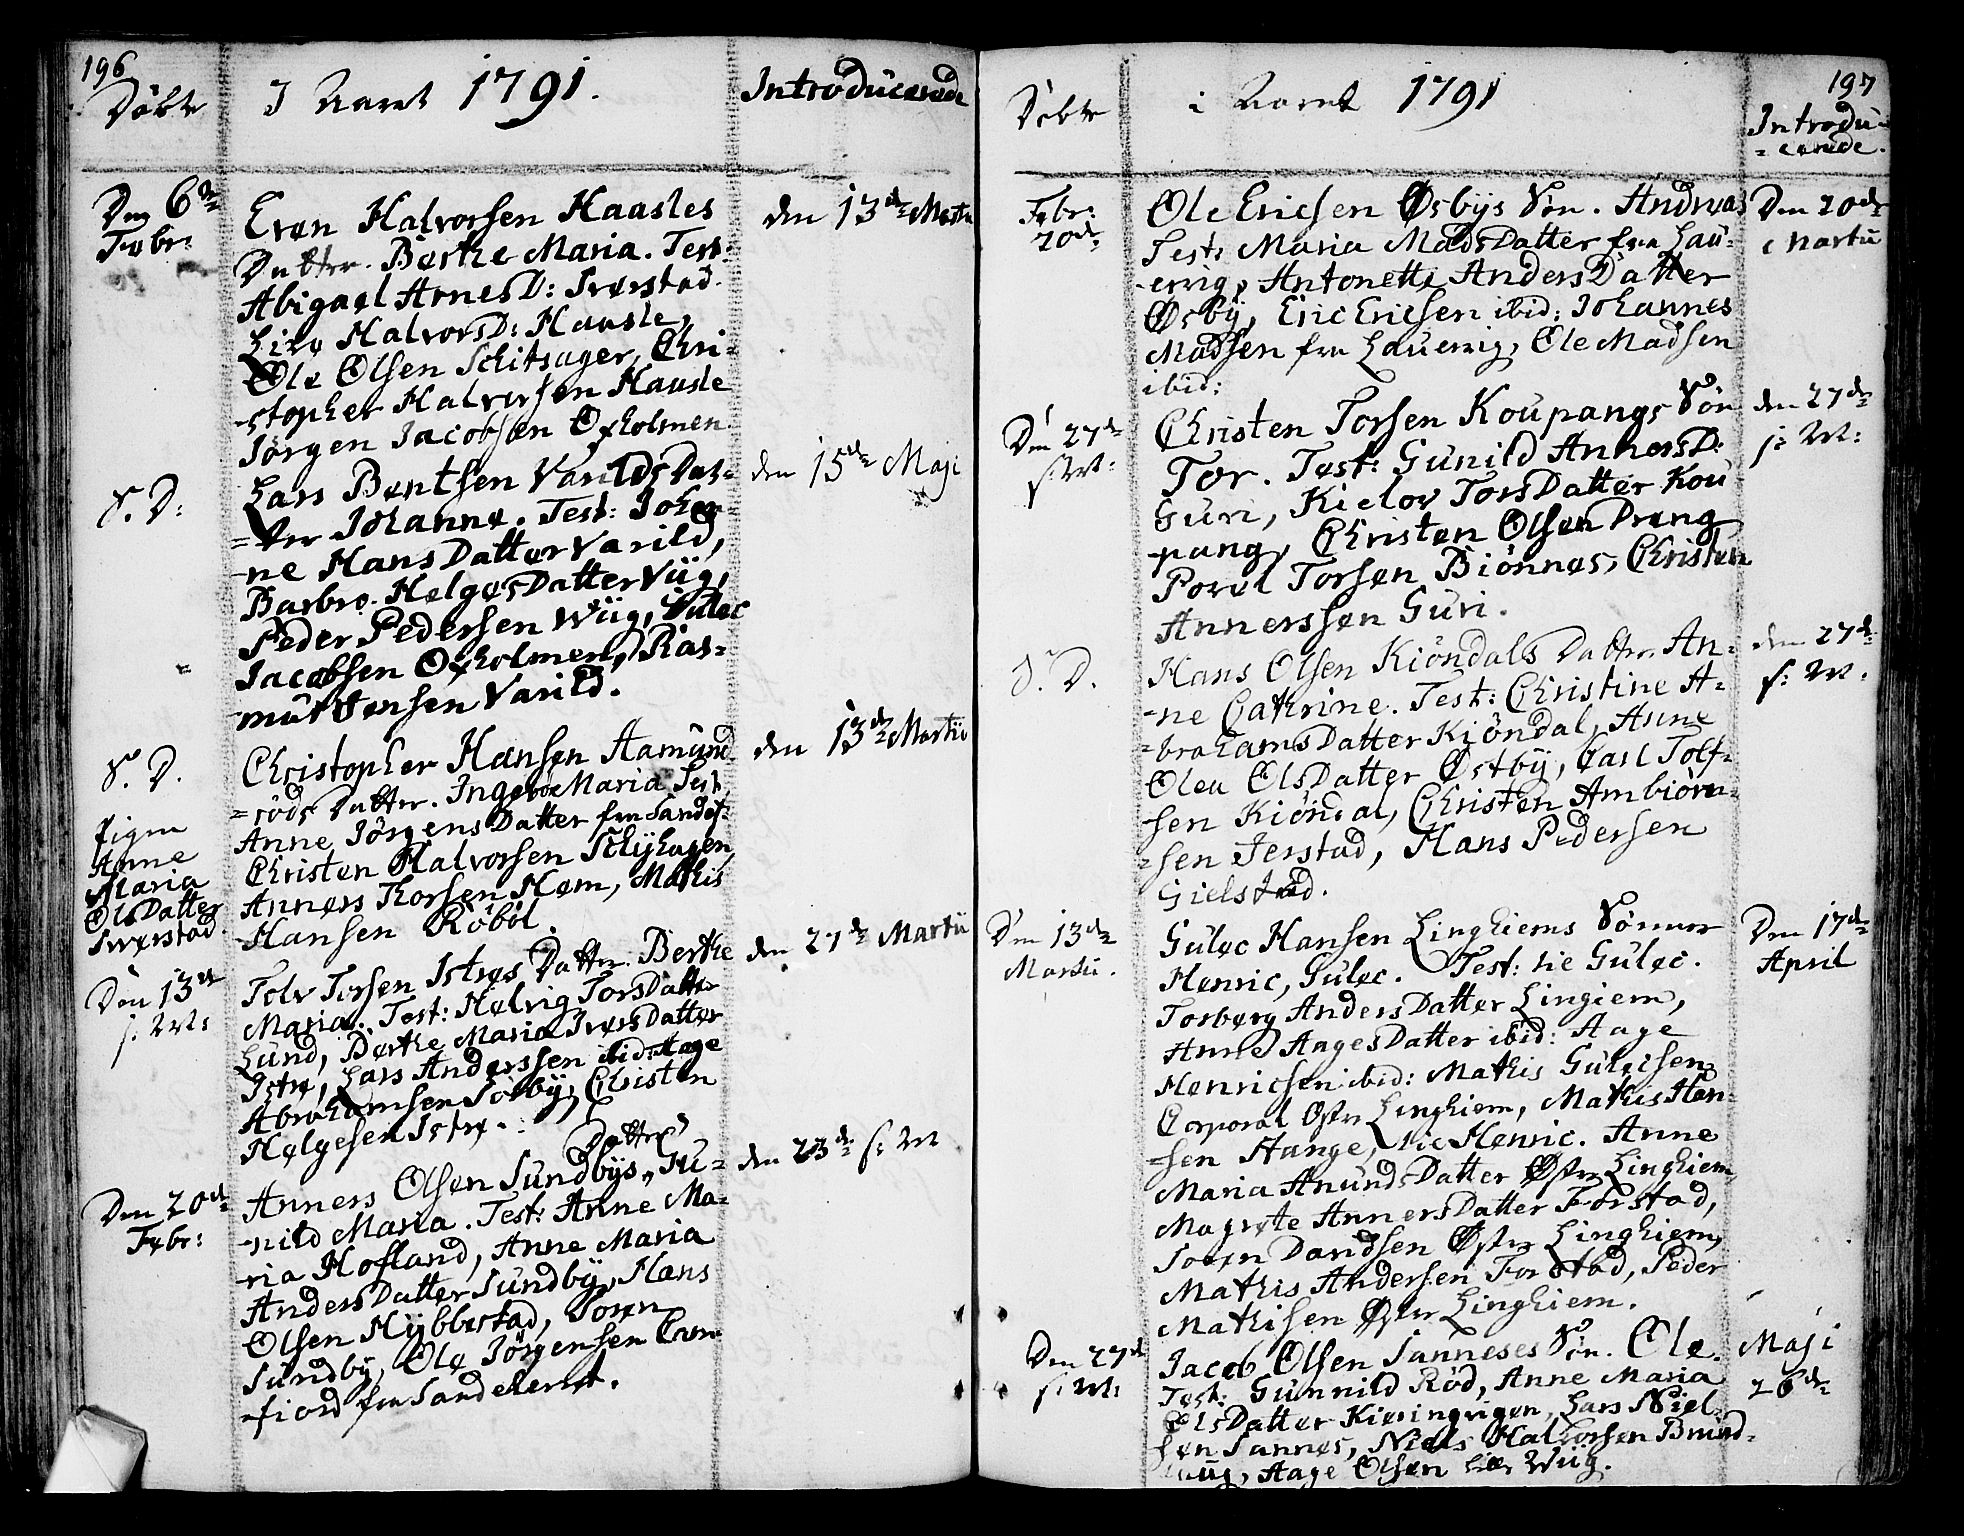 196
Döbte
I Aaret 1791.
Introducerede
Den 6de
Febr:
Even Halvorsen Haasles
Datter. Berthe Maria. Test:
Abigael ArnesD: Iverstad.
Live HalvorsD: Haasle,
Ole Olsen Schitsager, Chri-
-stopher Halvorsen Haasle
Jörgen Jacobsen Oxholmen
den 13de Martii
S. D:
Lars Bentsen Varilds Dat-
-ter Johanne. Test: Johan-
-ne HansDatter Varild,
Barbro HelgesDatter Viig,
Peder Pedersen Wiig, Gulec
Jacobsen Oxholmen, Ras-
mus Jensen Varild.
den 15de Maji
S. D.
Christopher Hansen Aamund
-röds Datter. Ingebor Maria Test
Anne JörgensDatter fra Sandef:
Christen Halvorsen Schjihagen,
Anners Thorsen Hem, Mathis
Hansen Röböl.
den 13de Martii
Pigen
Anne
Maria
OlsDatter
Iverstad
Den 13de
s: M:
Tolv Torsen Istres Datter Berthe
Maria. Test: Helvig TorsDatter
Lund, Berthe Maria IversDatter
Istre, Lars Anderssen ibid: Aage
Abrahamsen Sölby, Christen
Helgesen Istre.
den 27de Martii
Den 20de
Febr:
Datter
Anners Olsen Sundbÿs, Gu-
-nild Maria. Test: Anne Ma-
-ria Hofland, Anne Maria
AndersDatter Sundbÿ, Hans
Olsen Hÿbbestad, Soren
Sundbÿ, Ole Jörgensen Even
-fiord fra Sandeherret.
den 23de s: M
197
Döbte
i Aaret 1791
Introdu-
-cerede.
Febr:
20de
Ole Ericsen Øsbÿs Sön. Andreas
Test: Maria MadsDatter fra Lau-
-ervig, Antonette AndersDatter
Øsbÿ, Eric Ericsen ibid: Johannes
Madsen fra Lauervig, Ole Madsen
ibid:
Den 20de
Martii
Den 27de
s: M:
Christen Torsen Koupangs Sön
Tor. Test: Gunild AnnersD:
Guri, Kielov TorsDatter Kou
-pang, Christen Olsen Dreng
Povel Torsen Biönnes, Christen
Annerssen Guri.
den 27de
s: M:
S. D.
Hans Olsen Kiöndals Datter An-
-ne Cathrine. Test: Christine A-
-brahamsDatter Kiöndal, Anne
Olea OlsDatter Østbÿ, Carl Tolf-
-sen Kiöndal, Christen Ambiörn-
-sen Jerstad, Hans Pedersen
Gielstad.
den 27de
s: M:
Den 13de
Martii.
Gulec Hansen Linghiems Sönner
Henric, Gulec. Test: tie Gulec.
Torberg AndersDatter Lingiem,
Anne AagesDatter ibid: Aage
Henricsen ibid: Mathis Gulecsen
Corporal Østr Linghiem, Mathis Han-
-sen Hange, tie Henric. Anne
Maria AnundsDatter Østr Linghiem,
Magrete AnnersDatter Forstad,
Soren Davidsen Østr Linghiem,
Mathis Andersen Forstad, Peder
Mathisen Østr Linghiem.
Den 17de
April
Den 27de
s: M:
Jacob Olsen Sanneses Sön. Ole.
Test: Gunnild Röd, Anne Maria
OlsDatter Kieringvigen, Lars Niel-
sen Sannes, Niels Halvorsen Brund-
Aage Olsen Wiig.
Maji
26de